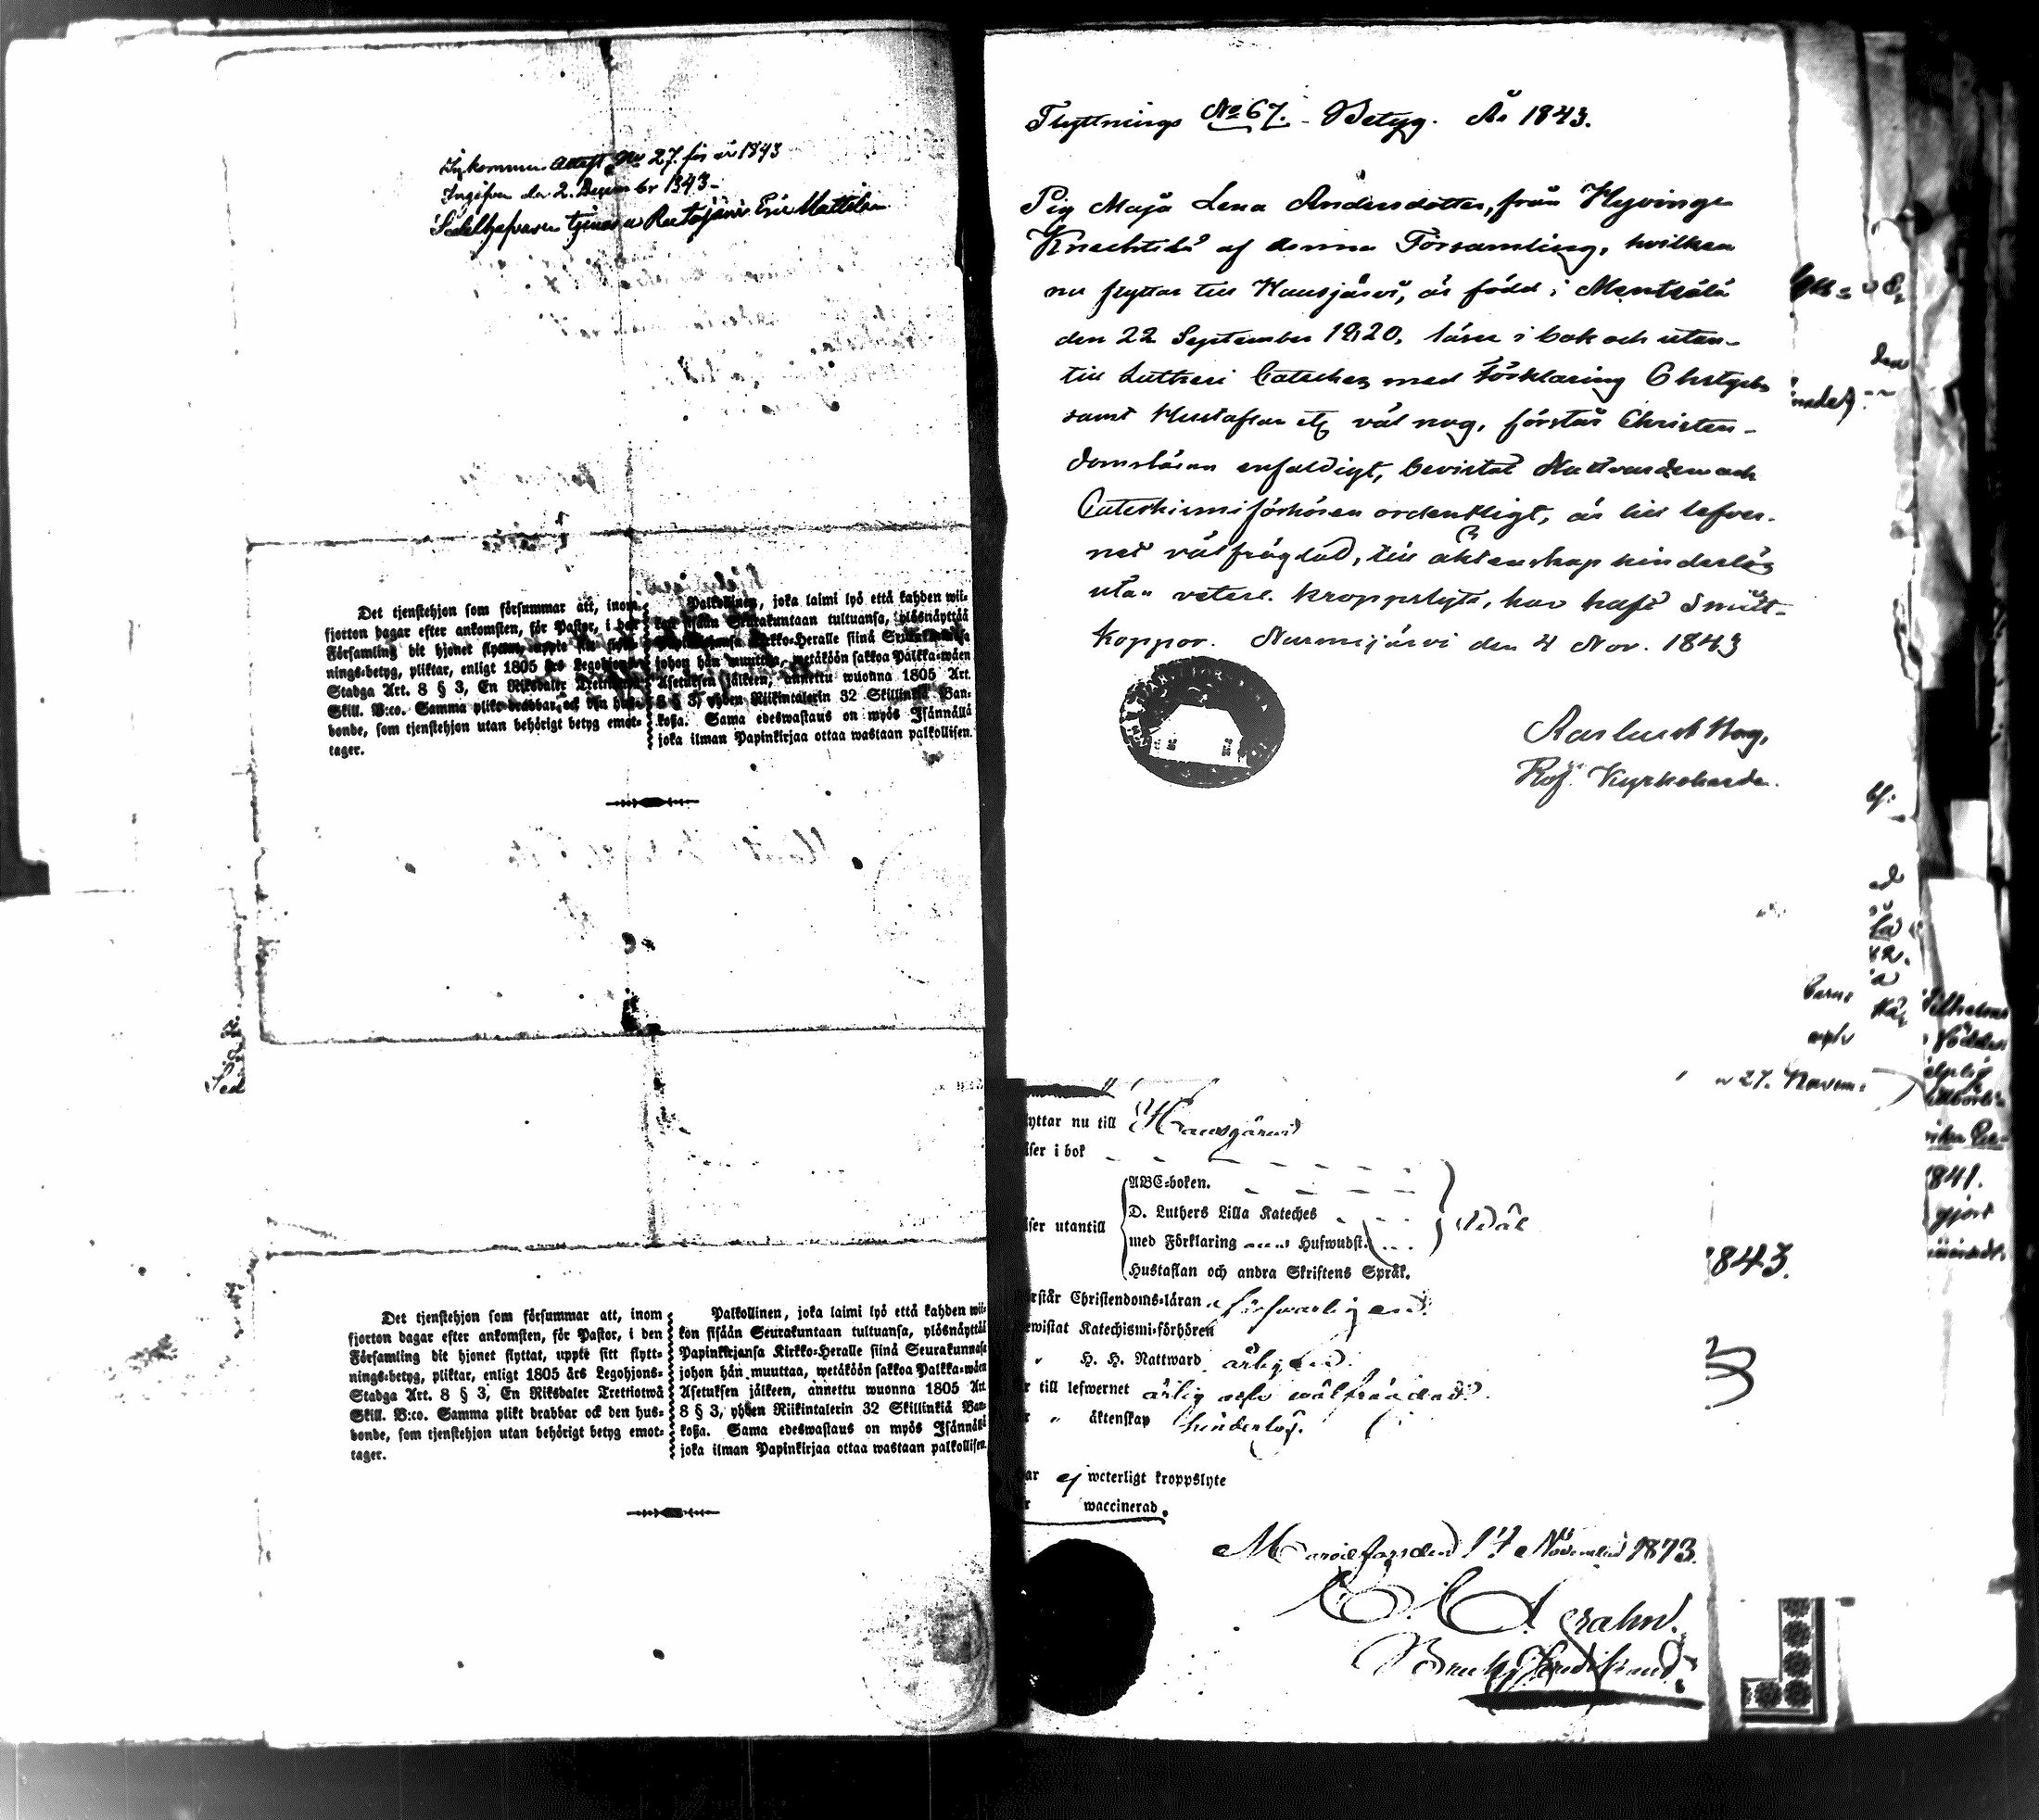 Inkommen Attest No 27. för år 1843
Ingifven den 2. December 1843 –
Sedelhafvaren tjenar
Det tjenstehjon som försummar att, inom
fjorton dagar efter ankomsten, för Pastor, i den
Församling dit hjonet flyttat, uppte sitt flytt-
nings-betyg, pliktar, enligt 1805 års Legohjons-
Stadga Art. 8 § 3, En Riksdaler Trettiotwå
Skill. B:co. Samma plikt drabbar ock den hus-
bonde, som tjenstehjon utan behörigt betyg emot-
tager.
Palkollinen, joka laimi lyö että kahden wii-
kon sisään Seurakuntaan tultuansa, ylösnäyttää
Papinkirjansa Kirkko-Heralle siinä Seurakunnasa
johon hän muuttaa, wetäköön sakkoa Palkka-wäen
Asetuksen jälkeen, annettu wuonna 1805 Art.
8 § 3, yhden Riikintalerin 32 Skillinkiä Ban-
koßa. Sama edeswastaus on myös Isännällä
joka ilman Papinkirjaa ottaa wastaan palkollisen.
Det tjenstehjon som försummar att, inom
fjorton dagar efter ankomsten, för Pastor, i den
Församling dit hjonet flyttat, uppte sitt flytt-
nings-betyg, pliktar, enligt 1805 års Legohjons-
Stadga Art. 8 § 3, En Riksdaler Trettiotwå
Skill. B:co. Samma plikt drabbar ock den hus-
bonde, som tjenstehjon utan behörigt betyg emot-
tager.
Palkollinen, joka laimi lyö että kahden wii-
kon sisään Seurakuntaan tultuansa, ylösnäyttää
Papinkirjansa Kirkko-Heralle siinä Seurakunnasa
johon hän muuttaa, wetäköön sakkoa Palkka-wäen
Asetuksen jälkeen, annettu wuonna 1805 Art
8 § 3, yhden Riikintalerin 32 Skillinkiä Ban-
koßa. Sama edeswastaus on myös Isännällä
joka ilman Papinkirjaa ottaa wastaan palkollisen.
Flyttnings No 67. - Betyg. År 1843.
Pig Maja Lena Andersdotter, från Hyvinge
Knechtilä af denna Församling, hvilken
nu flyttar till Hausjärvi, är född i Mentsälä
den 22 September 1820, läser i bok och utan-
till Lutheri Cateches med Förklaring
samt Hustaflan etc väl nog, förstår Christen-
domsläran enfaldigt, bevistat Nattvarden och
Catechismiförhören ordentligt, är till lefver-
net välfrägdad, till äktenskap hinderlös
utan veterl. kroppslyte, har haft Smitt-
koppor. Nurmijärvi den 4 Nov. 1843
Kyrkoherde.
yttar nu till Hausjärvi
äser i bok
ABC-boken.
D. Luthers Lilla Kateches
äser utantill
med Förklaring Hufwudst.
Hustaflan och andra Skriftens Språk.
Wäl
örstår Christendoms-läran försvarligen
ewistat Katechismi-förhören
" H. H. Nattward årligen.
r till lefwernet ärlig och wälfrägdad.
r " äktenskap hinderlös.
ar ej weterligt kroppslyte
r waccinerad.
November 1843.
27. Novem:
843.
1841.